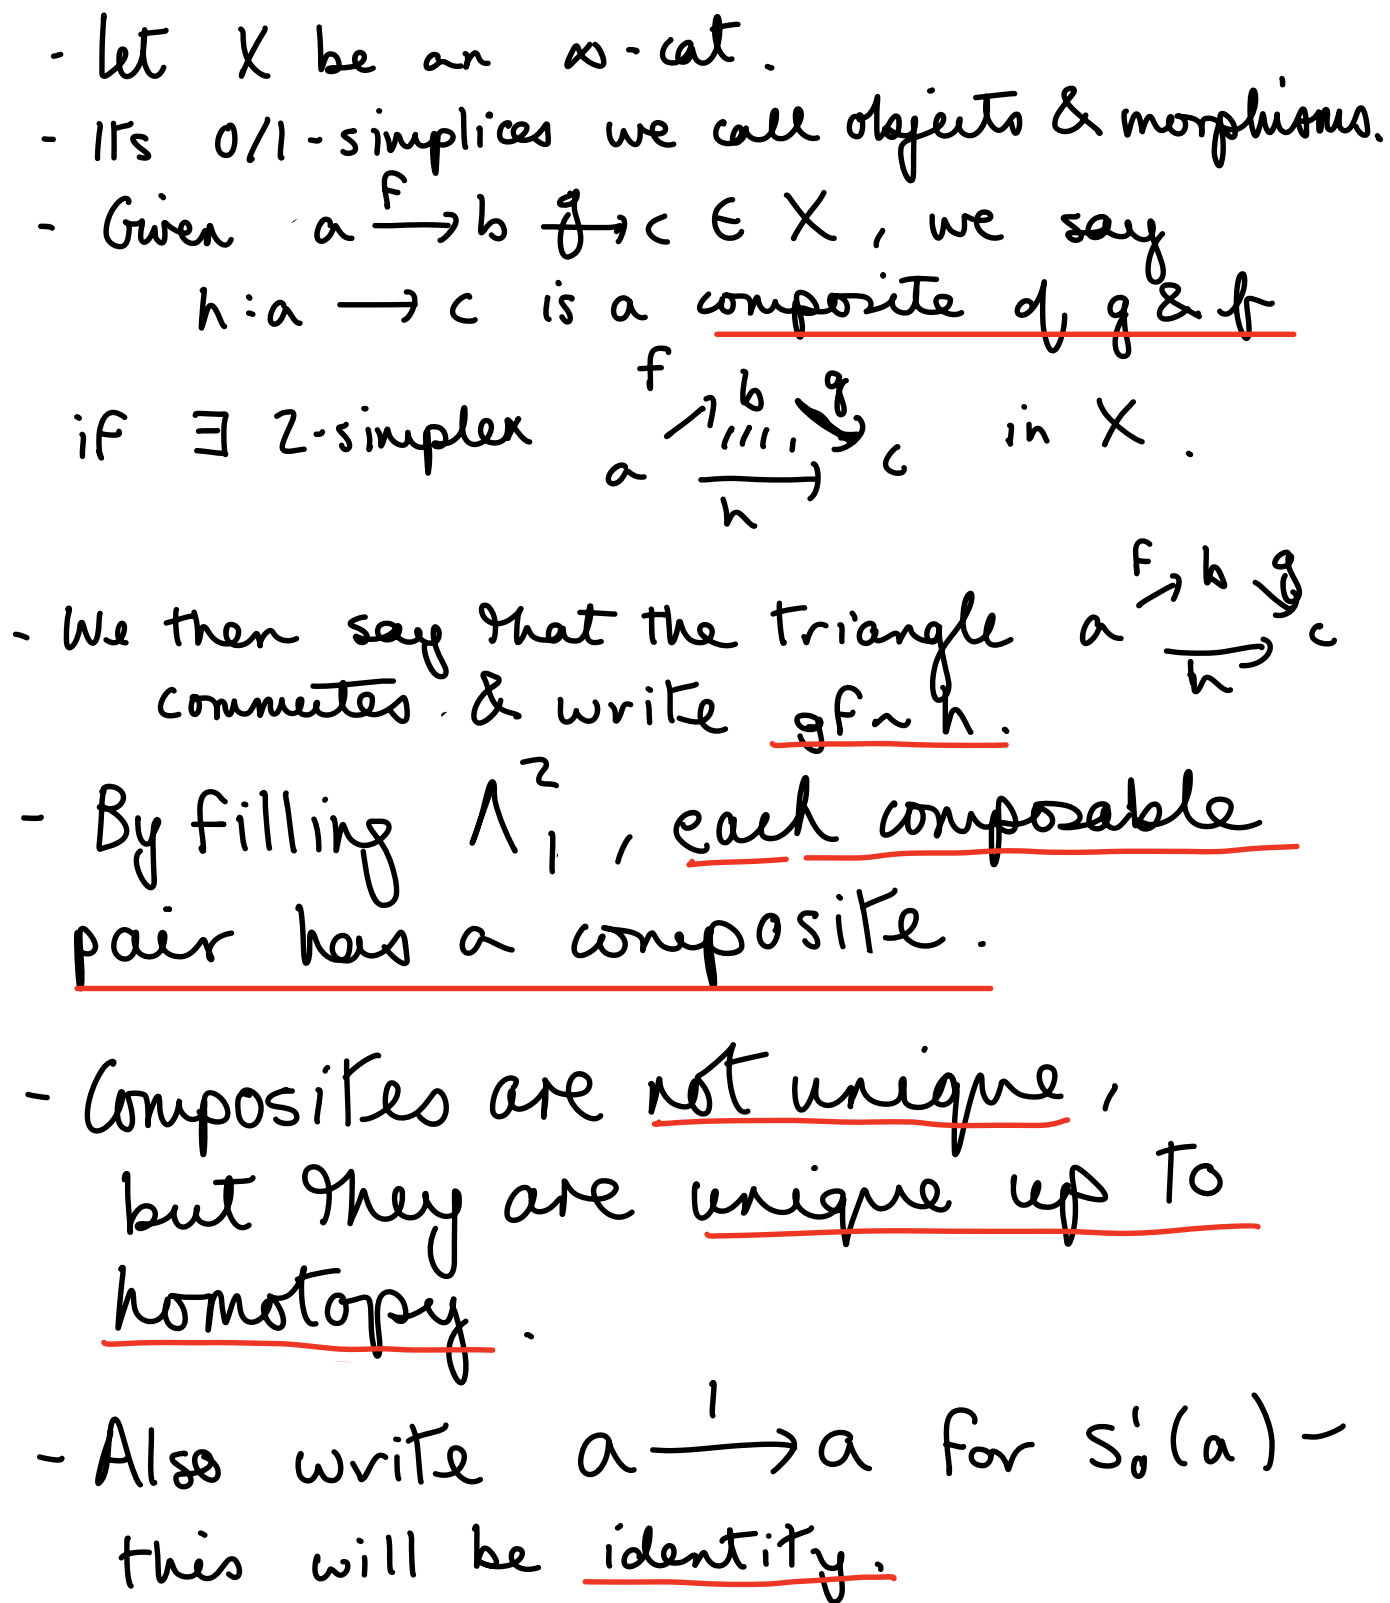 - Let X be an ∞-cat.
- Its 0/1-simplices we call objects & morphisms.
- Given a \xrightarrow{f} b \xrightarrow{g} c ∈ X, we say
h: a ⟶ c is a composite of g & f
if ∃ 2-simplex a f b g c h in X.
- We then say that the triangle a f b g c h
commutes & write gf ~ h.
- By filling Λ^2_1, each composable
pair has a composite.
- Composites are not unique,
but they are unique up to
homotopy.
- Also write a \xrightarrow{1} a for s_0^1(a) -
this will be identity.